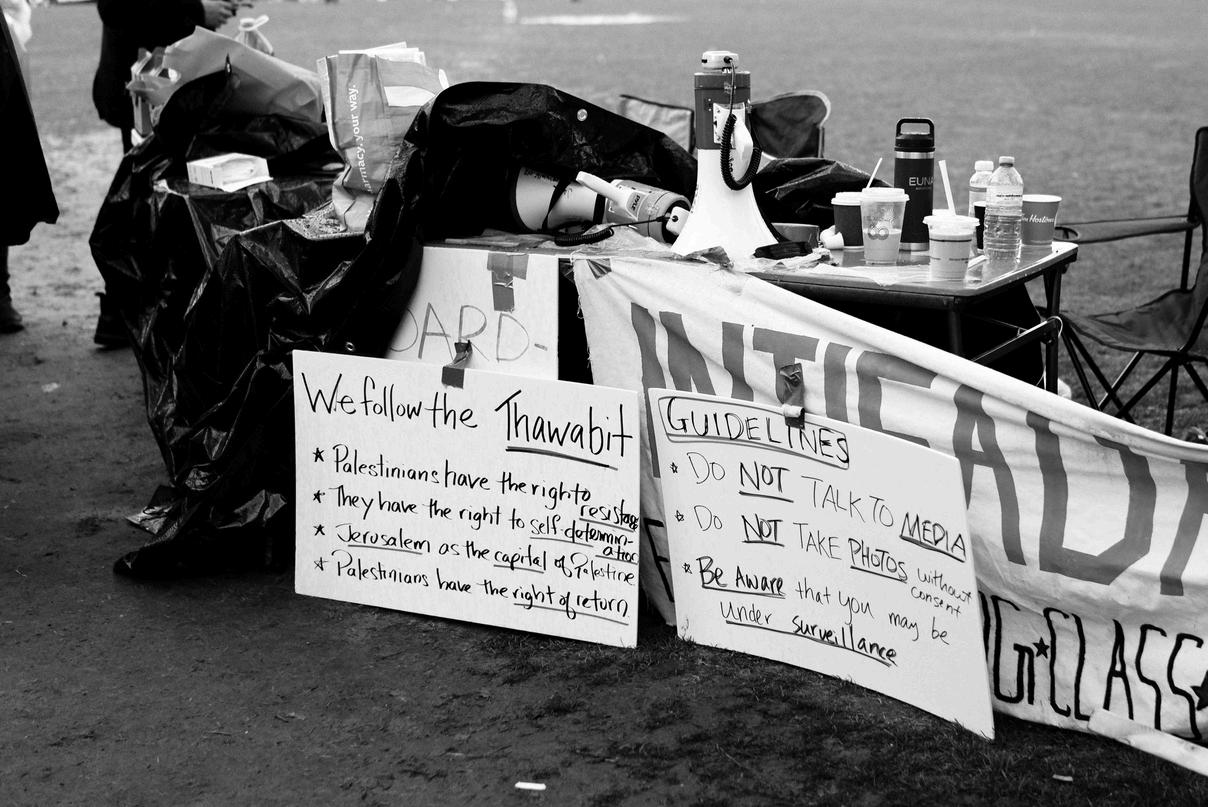 armacy. your way.
OARD-
We follow the Thawabit
* Palestinians have the right to
resistance
* They have the right to self-determin-
ation
* Jerusalem as the capital of Palestine
* Palestinians have the right of return
GUIDELINES
* DO NOT TALK TO MEDIA
* Do NOT TAKE PHOTOS without
consent
* Be Aware that you may be
under surveillance
INTIFADA
NG★CLASS★
EUNA
Tim Hortons